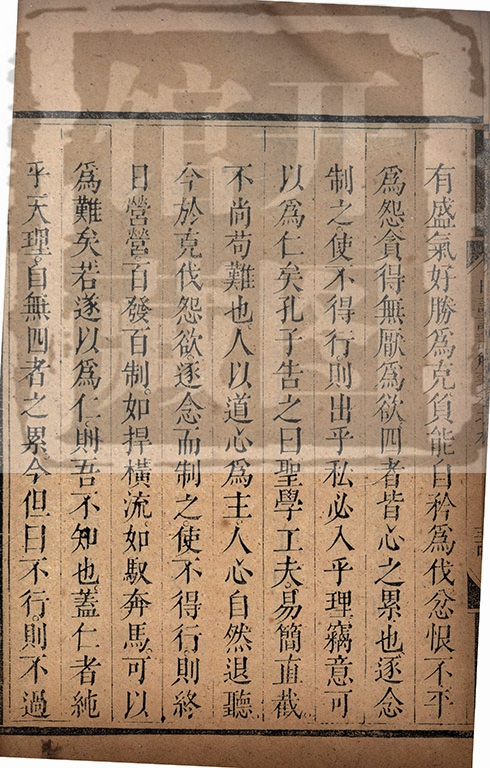 有盛氣好勝爲克負能自矜爲伐忿恨不平
爲怨貪得無厭爲欲四者皆心之累也逐念
制之使不得行則出乎私必入乎理竊意可
以爲仁矣孔子告之曰聖學工夫易簡直截
不尚苟難也人以道心爲主人心自然退聽
今於克伐怨欲逐念而制之使不得行則終
日營營百發百制如捍橫流如馭奔馬可以
爲難矣若遂以爲仁則吾不知也蓋仁者純
乎天理自無四者之累今但曰不行則不過